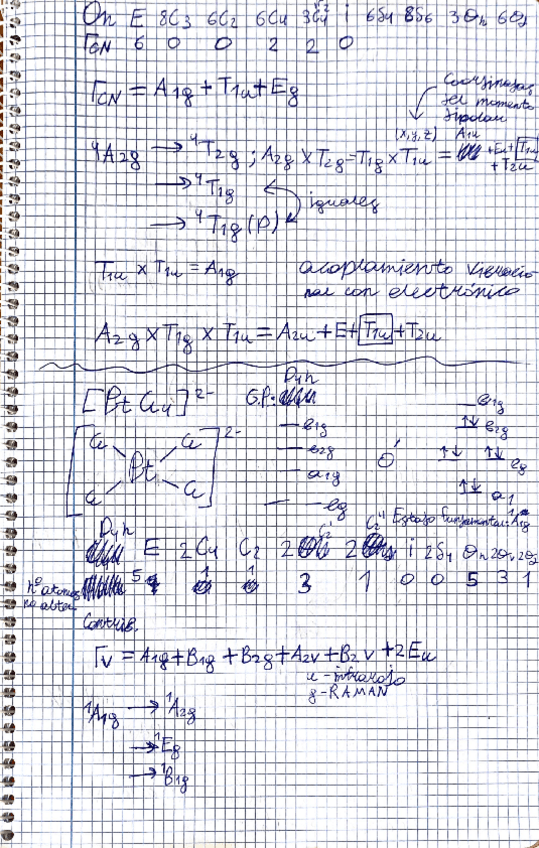 Oh E 8C3 6C2 6C4 3C4² i 6S4 8S6 3σh 6σd
ΓCN 6 0 0 2 2 0
ΓCN = A1g + T1u + Eg
Coordenadas
del momento
dipolar
(x, y, z)
⁴A2g → ⁴T2g ; A2g × T2g = T1g × T1u = A1u + Eu + T1u + T2u
→ ⁴T1g
→ ⁴T1g (P)
iguales
T1u × T1u = A1g
acoplamiento vibracio
nal con electrónico
A2g × T1g × T1u = A2u + E + T1u + T2u
[PtCl4]²⁻ G.P: D4h
b1g
b2g
a1g
eg
Ó
b1g
↑↓ b2g
↑↓ ↑↓ eg
↑↓ a1
[Cl Cl Pt Cl Cl]²⁻
Estado fundamental: ¹A1g
D4h E 2C4 C2 2C2' 2C2'' i 2S4 σh 2σv 2σd
nº átomos
no alter. 5 1 1 3 1 0 0 5 3 1
Contrib.
Γv = A1g + B1g + B2g + A2u + B2u + 2Eu
u - infrarojo
g - RAMAN
¹A1g → ¹A2g
→ ¹Eg
→ ¹B1g